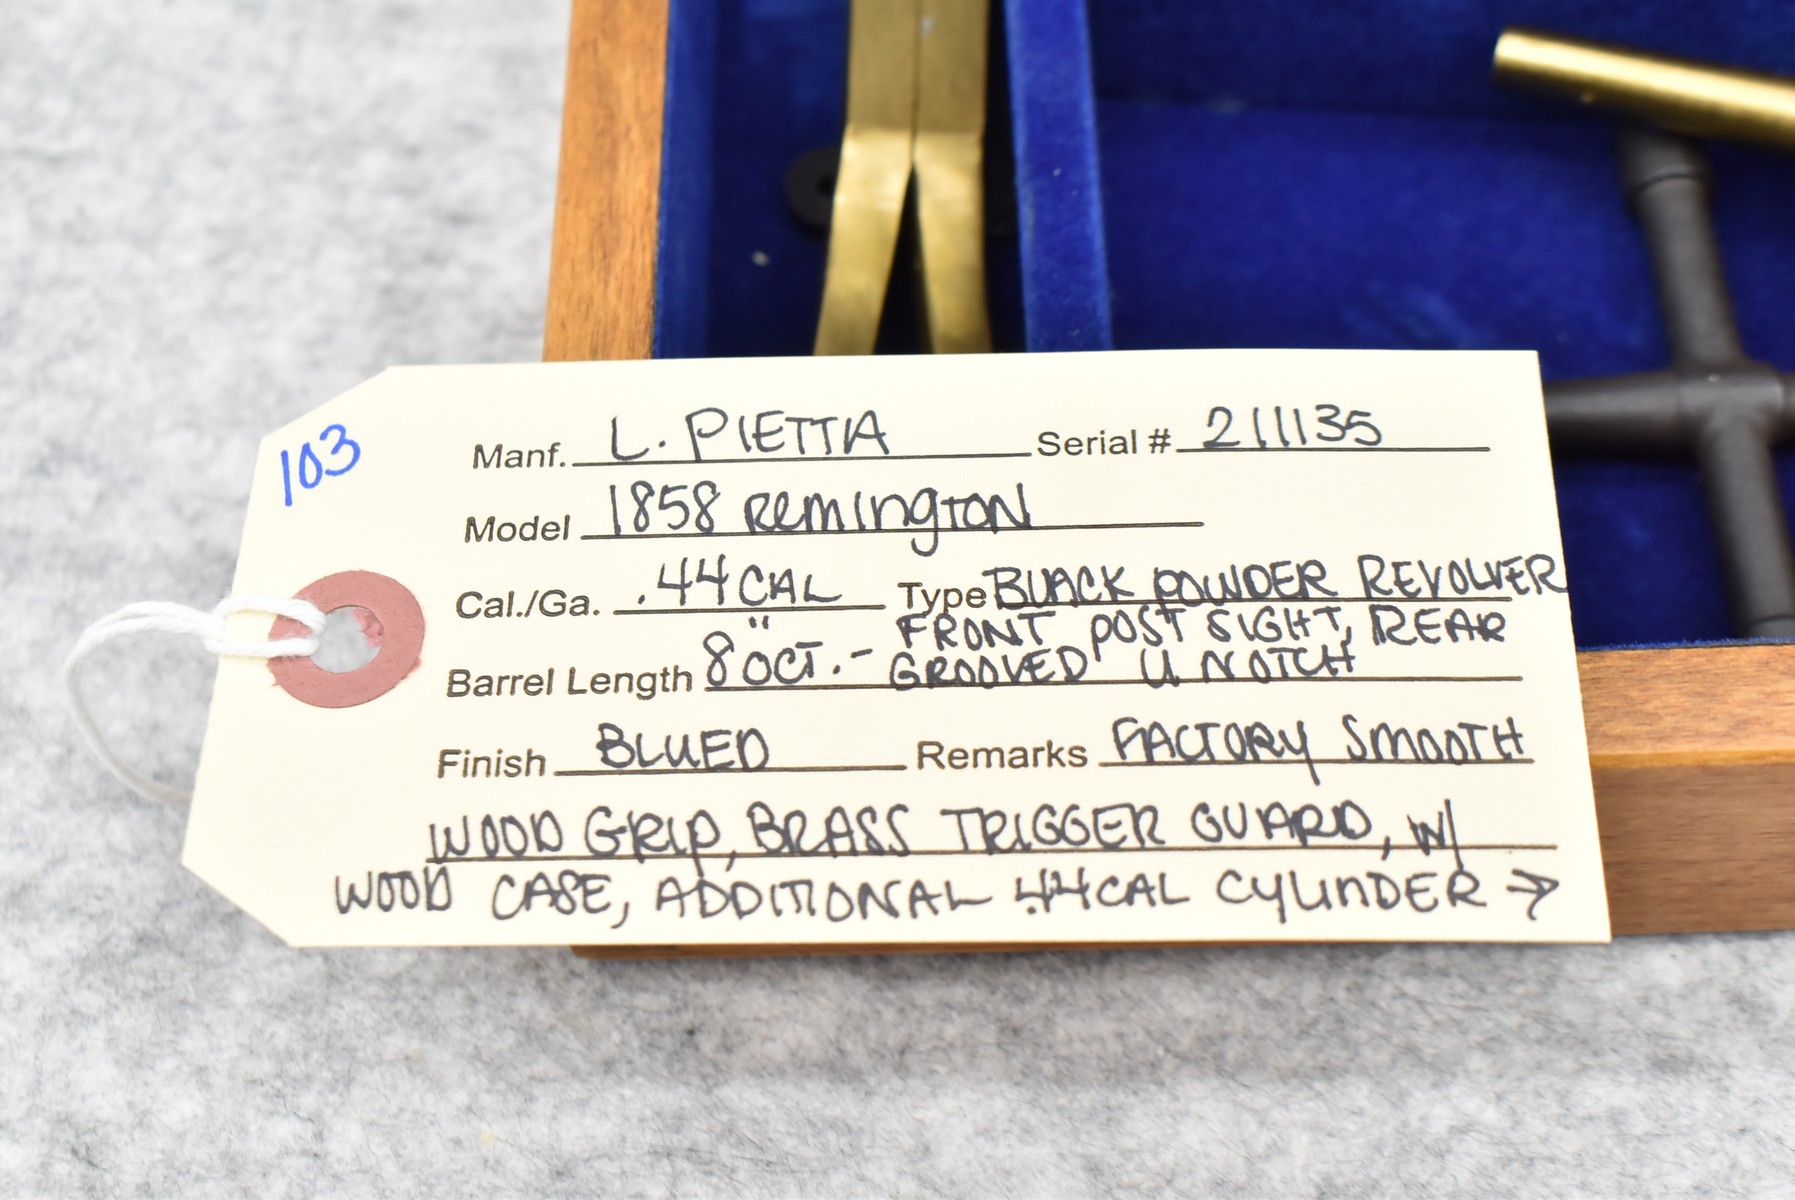 103
Manf. L. PIETTA Serial # 211135
Model 1858 Remington
Cal./Ga. .44 CAL Type BLACK POWDER REVOLVER
FRONT POST SIGHT, REAR
Barrel Length 8" OCT. - GROOVED U NOTCH
Finish BLUED Remarks FACTORY SMOOTH
WOOD GRIP, BRASS TRIGGER GUARD, W/
WOOD CASE, ADDITIONAL .44 CAL CYLINDER →